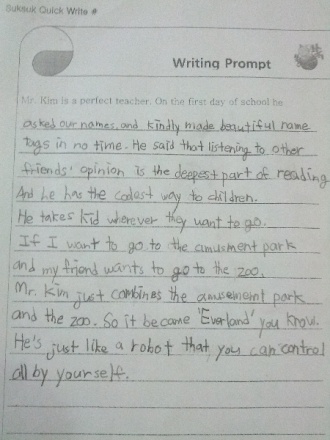 Suksuk Quick Write #
Writing Prompt
Mr. Kim is a perfect teacher. On the first day of school he
asked our names. and kindly made beautiful name
tags in no time. He said that listening to other
friends' opinion is the deepest part of reading
And he has the coolest way to children.
He takes kid wherever they want to go.
If I want to go to the amusment park
and my friend wants to go to the zoo.
Mr. Kim just combines the amusement park
and the zoo. So it became 'Everland' you know.
He's just like a robot that you can control
all by yourself.